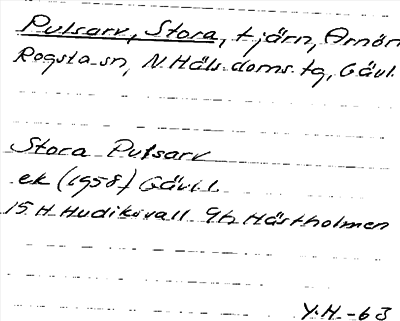 Pulsarv, Stora, tjärn, Arnön
Rogsta sn, N. Häls. doms. tg, Gävl.
Stora Pulsarv
ek (1958) Gävl.
15. H Hudiksvall 9h Hästholmen
Y.H. -63